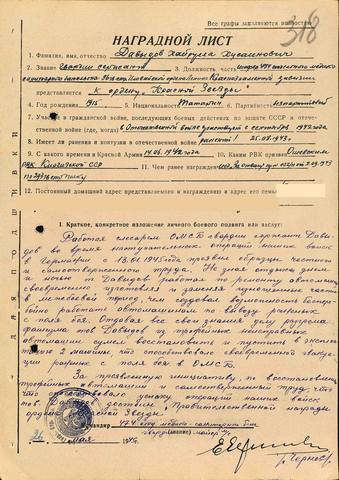 Все графы заполняются полностью
318
НАГРАДНОЙ ЛИСТ
1. Фамилия, имя, отчество Давыдов Хайрулла Хусаинович
2. Звание Гвардии сержант 3. Должность слесарь
санитарного батальона
представляется к ордену „Красной Звезды“
4. Год рождения 1915 5. Национальность Татарин 6. Партийность беспартийный
7. Участие в гражданской войне, последующих боевых действиях по защите СССР и отечественной войне (где, когда) в Отечественной войне участвует с сентября 1942 года
8. Имеет ли ранения и контузии в отечественной войне ранен 25.08.1943г.
9. С какого времени в Красной Армии 1942 года 10. Каким РВК призван Ошским
РВК Киргизской ССР 11. Чем ранее награжден
12. Постоянный домашний адрес представляемого к награждению и адрес его семьи
1. Краткое, конкретное изложение личного боевого подвига или заслуг:
Работая слесарем ОМСБ гвардии сержант Давы-
дов во время наступательных операций наших войск
в Германии с 13.01.45 года проявил образцы честного
и самоотверженного труда. Не зная отдыха днем
и ночью т. Давыдов работал по ремонту автомашин
своевременно изготовлял и заменял изношенные части
в межбоевой период, чем создавал возможность беспере-
бойно работать автомашинам по вывозу раненых
с поля боя. Отдавая все свои знания делу разгрома
фашизма тов Давыдов из трофейных неисправных
автомашин сумел восстановить и пустить в эксплоа-
тацию 2 машины что способствовало своевременной эвакуа-
ции раненых с поля боя в ОМСБ.
За проявленную инициативу, по восстановлению
трофейных автомашин и самоотверженный труд что
способствовало успеху операций наших войск
тов. Давыдов достоин Правительственной награды
ордена „Красной Звезды“.
Командир
гвардии майор м/с
(звание)
мая 1945